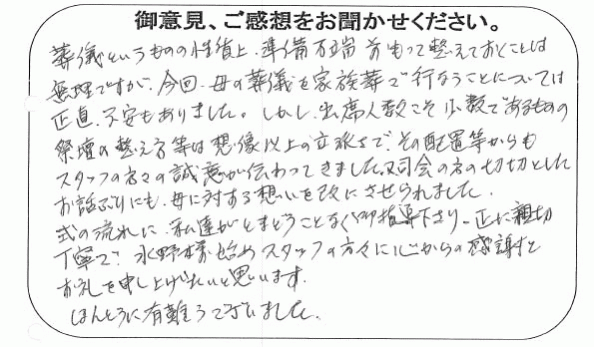 御意見、ご感想をお聞かせください。
葬儀というものの性質上、準備万端 前もって整えておくことは
無理ですが、今回、母の葬儀を家族葬で行なうことについては
正直、不安もありました。しかし、出席人数こそ少数であるものの
祭壇の整え方等は想像以上の立派さで、その配置等からも
スタッフの方々の誠意が伝わってきました。又司会の方の切切とした
お話ぶりにも、母に対する想いを改にさせられました。
式の流れに、私達がとまどうことなく御指導下さり、正に親切
丁寧で、水野様始めスタッフの方々に心からの感謝と
お礼を申し上げたいと思います。
ほんとうに有難うございました。